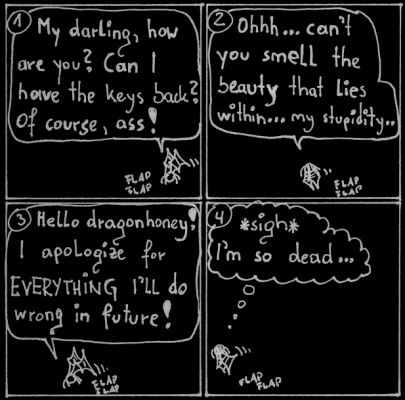 1
My darling, how
are you? Can I
have the keys back?
Of course, ass!
FLAP
FLAP
2
Ohhh... can't
you smell the
beauty that lies
within... my stupidity..
FLAP
FLAP
3
Hello dragonhoney!
I apologize for
EVERYTHING I'LL do
wrong in future!
FLAP
FLAP
4
*sigh*
I'm so dead...
FLAP
FLAP